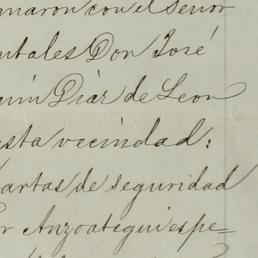 maron con el Señor
utales Don José
uin Diaz de Leon
esta vecindad:
cartas de seguridad
r Anzoategui espe=